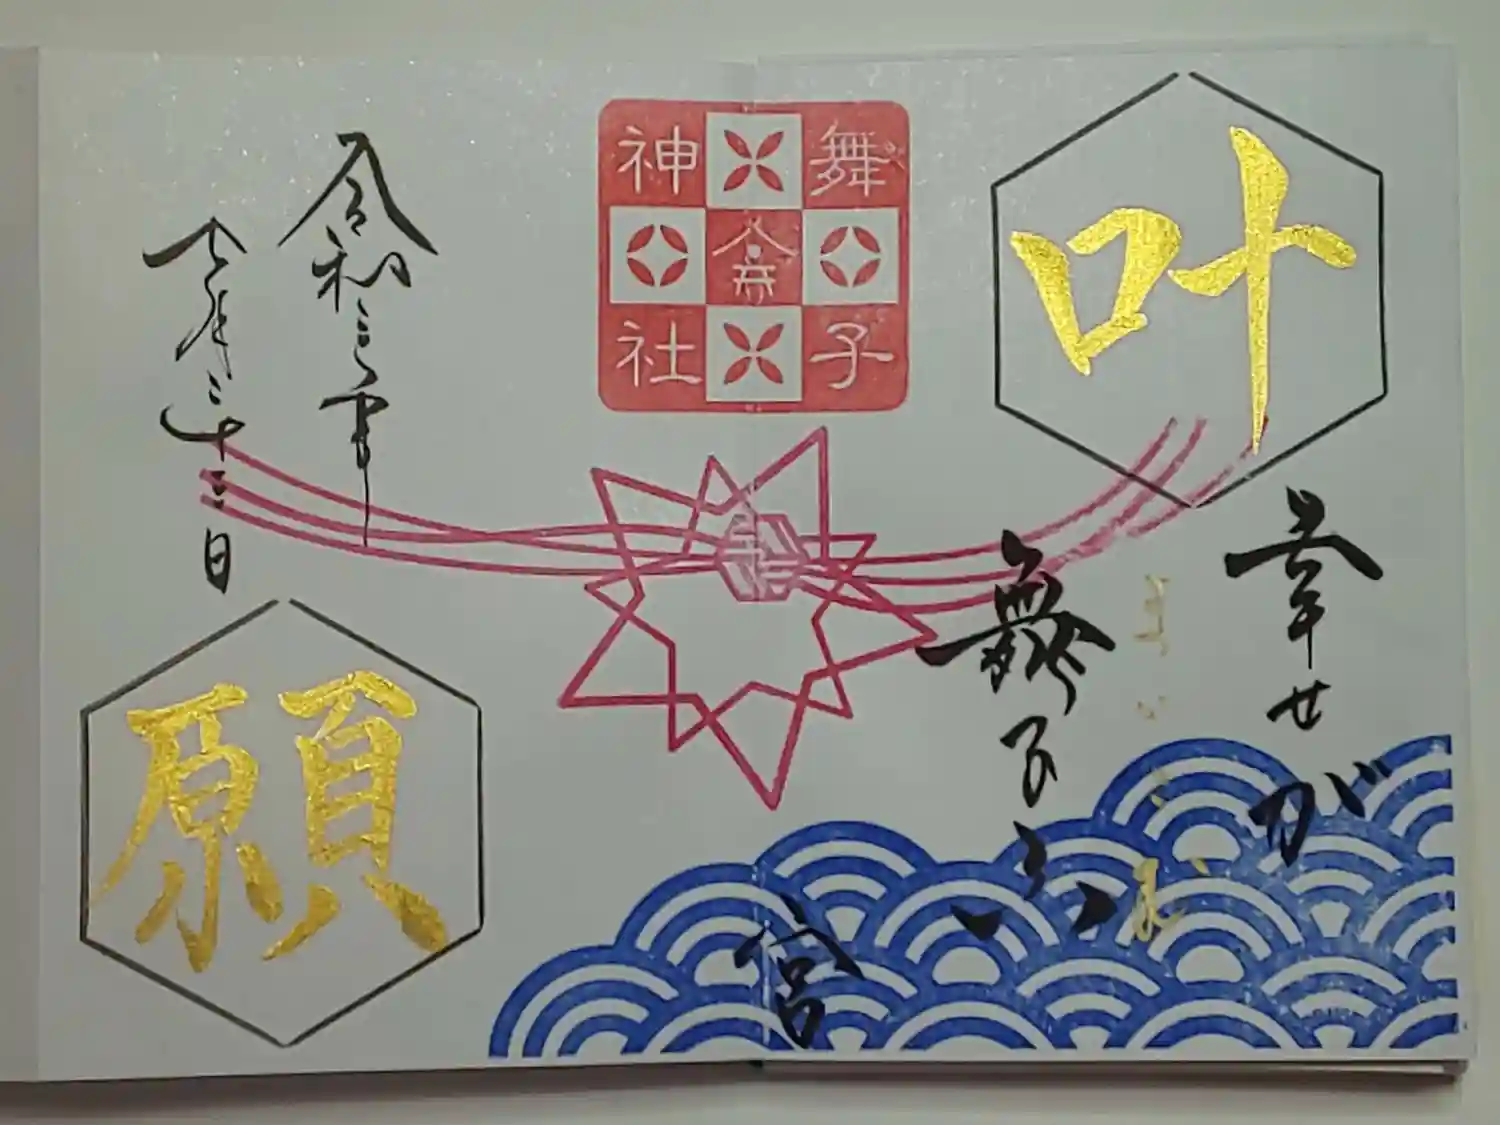 叶
幸せが
舞子
宮
舞子
神社
令和三年
七月二十三日
願